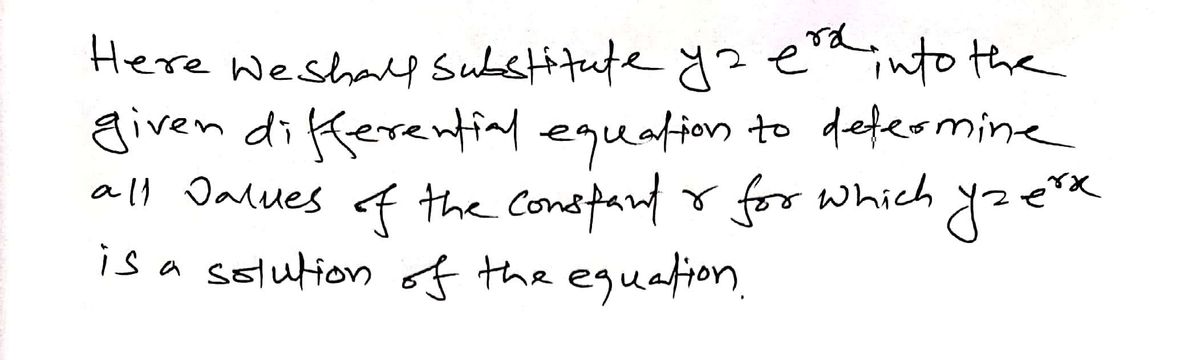 Here we shall substitute y = e^{rx} into the
given differential equation to determine
all values of the constant r for which y = e^{rx}
is a solution of the equation.